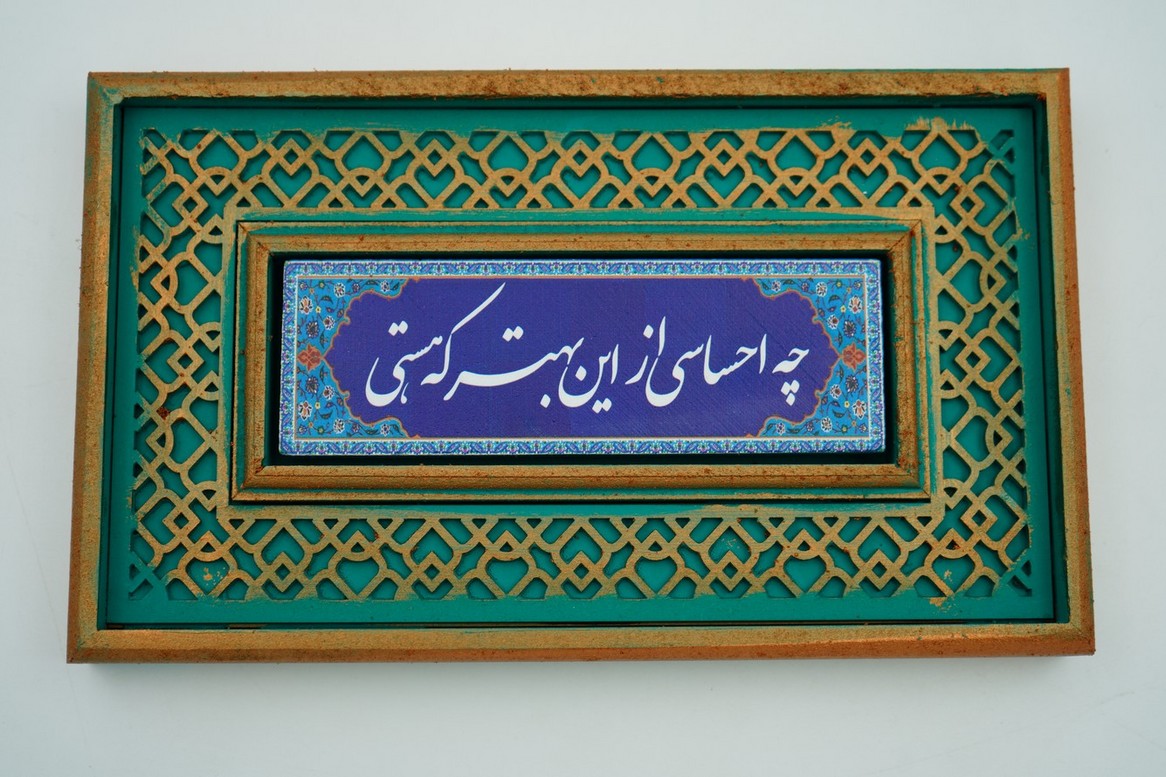 چه احساسی از این بهتر که هستی